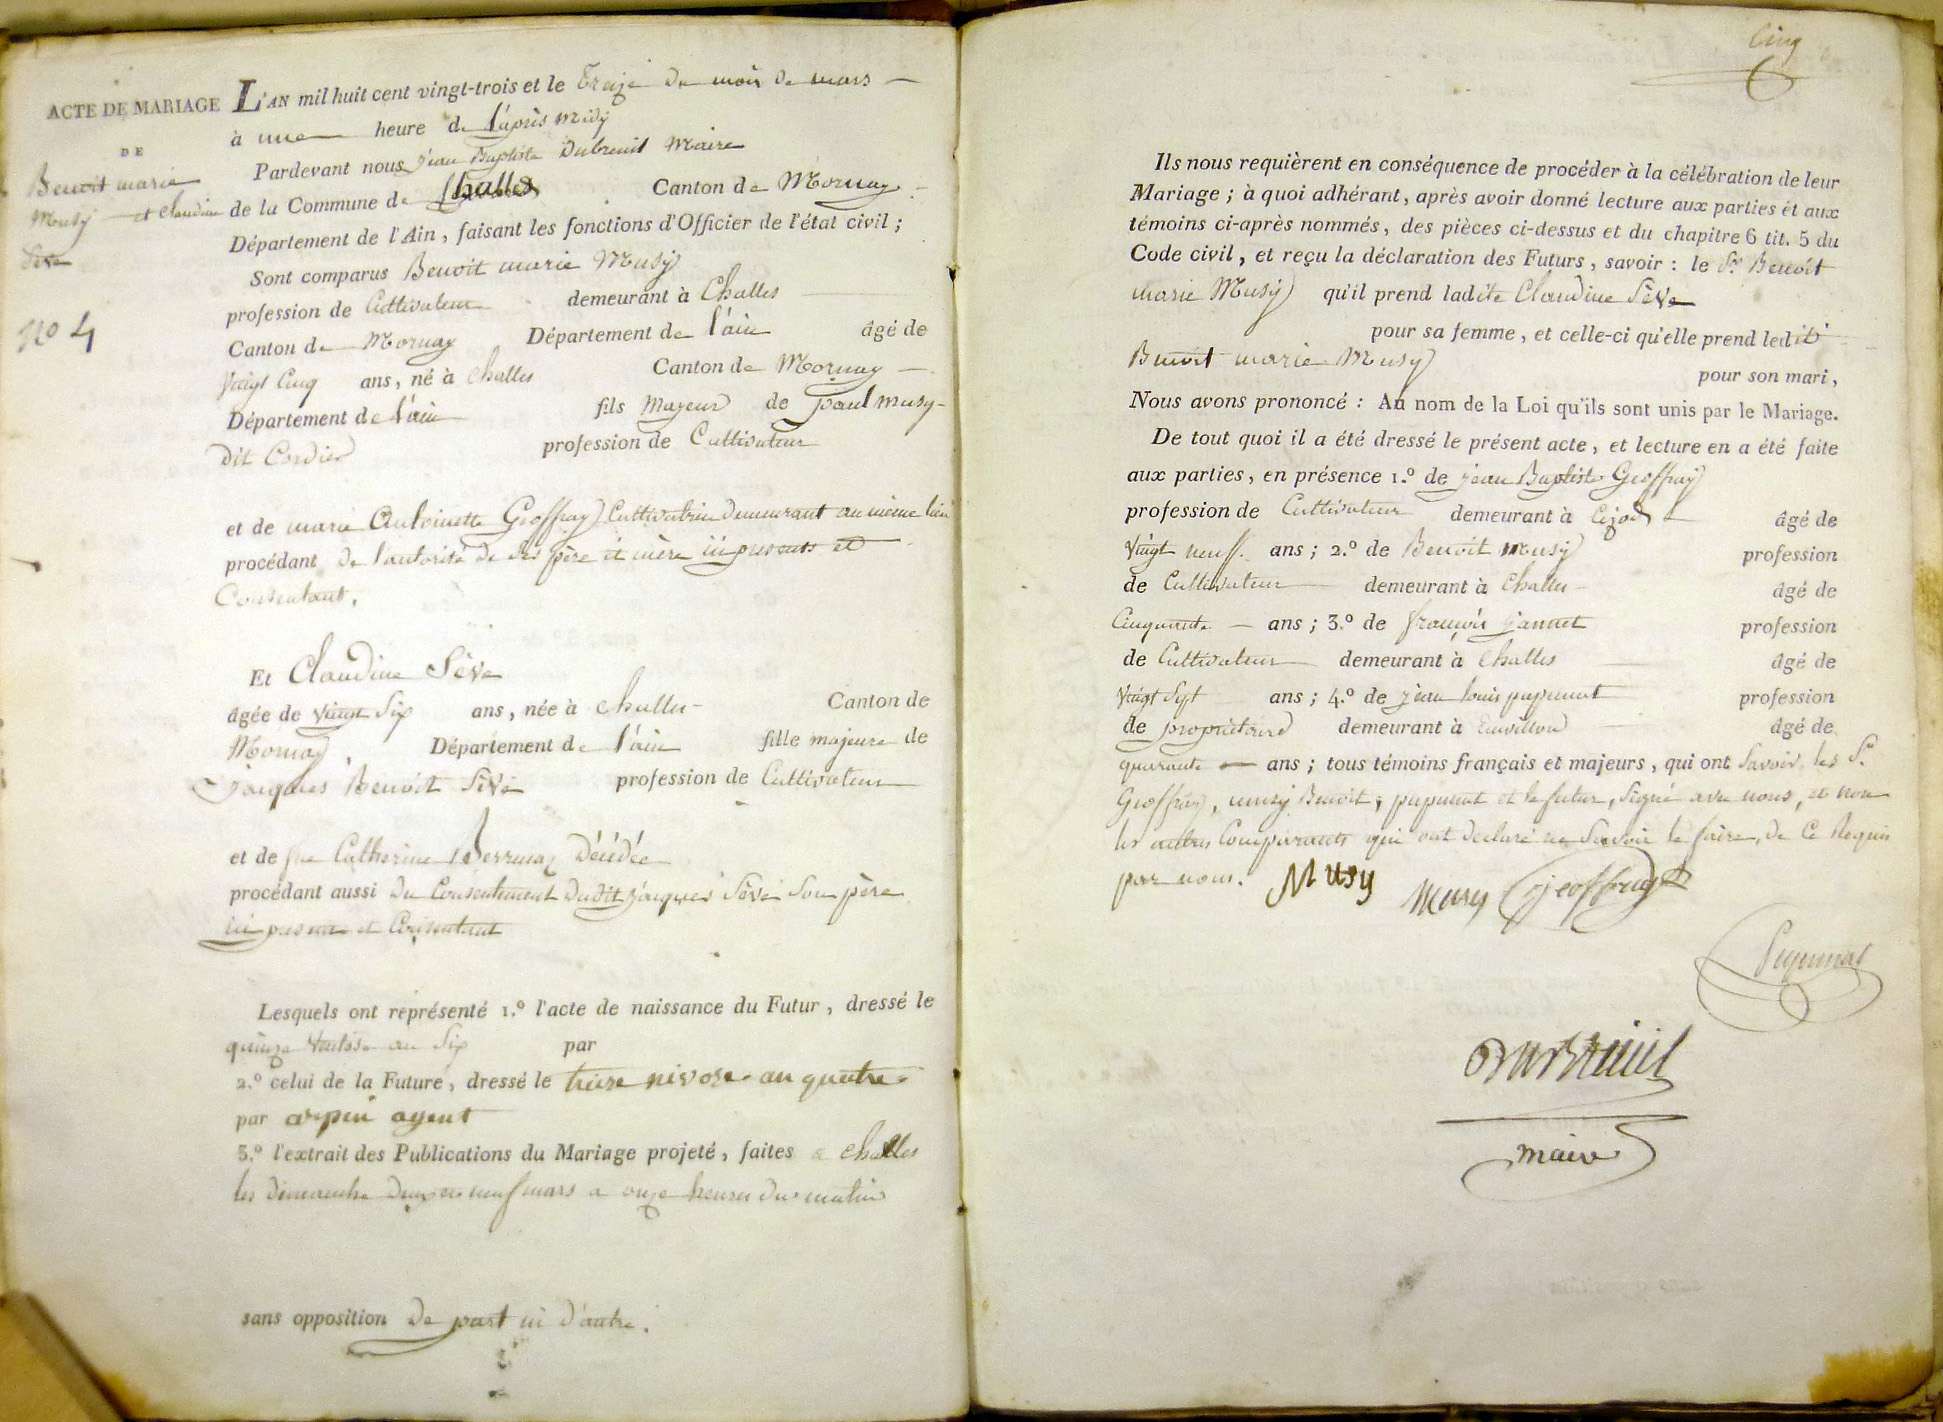 ACTE DE MARIAGE
DE
Benoit marie
Musy et Claudine
Sève
N.º 4
L'AN mil huit cent vingt-trois et le Treize du mois de mars
à une heure de l'après midy
Pardevant nous jean Baptiste Dubreuil Maire
de la Commune de Challes Canton de Mornay
Département de l'Ain, faisant les fonctions d'Officier de l'état civil ;
Sont comparus Benoit marie Musy
profession de Cultivateur demeurant à Challes
Canton de Mornay Département de l'ain âgé de
vingt Cinq ans, né à Challes Canton de Mornay
Département de l'ain fils Majeur de paul musy
dit Cordier profession de Cultivateur
et de marie Antoinette Geoffray Cultivatrice demeurant au même lieu
procédant de l'autorité de ses père et mère ici présents et
Consentant.
Et Claudine Sève
âgée de vingt Six ans, née à Challes Canton de
Mornay, Département de l'ain fille majeure de
jacques Benoit Sève profession de Cultivateur
et de fue Catherine décédée
procédant aussi du Consentement dudit jacques Sève Son père
ici présent et Consentant
Lesquels ont représenté 1.º l'acte de naissance du Futur, dressé le
quinze Ventose an Six par
2.º celui de la Future, dressé le treize nivose an quatre
par arpin agent
3.º l'extrait des Publications du Mariage projeté, faites a Challes
les dimanche deux et neuf mars a onze heures du matin
sans opposition De part ni d'autre.
Cinq
Ils nous requièrent en conséquence de procéder à la célébration de leur
Mariage ; à quoi adhérant, après avoir donné lecture aux parties et aux
témoins ci-après nommés, des pièces ci-dessus et du chapitre 6 tit. 5 du
Code civil, et reçu la déclaration des Futurs, savoir : le Sr. Benoit
marie Musy qu'il prend ladite Claudine Sève
pour sa femme, et celle-ci qu'elle prend ledit
Benoit marie Musy
pour son mari,
Nous avons prononcé : Au nom de la Loi qu'ils sont unis par le Mariage.
De tout quoi il a été dressé le présent acte, et lecture en a été faite
aux parties, en présence 1.º de jean Baptiste Geoffray
profession de Cultivateur demeurant à Cize âgé de
vingt neuf ans ; 2.º de Benoit Musy profession
de Cultivateur demeurant à Challes âgé de
Cinquante ans ; 3.º de françois jannet profession
de Cultivateur demeurant à Challes âgé de
vingt Sept ans ; 4.º de jean louis pupunat profession
de propriétaire demeurant à âgé de
quarante ans ; tous témoins français et majeurs, qui ont Savoir, les Sr.
Geoffray, musy Benoit, pupunat et le futur, Signé avec nous, et non
les autres Comparants qui ont déclaré ne Savoir le faire, de Ce Requis
par nous. Musy Musy jeoffray
Pupunat
Dubreuil
maire